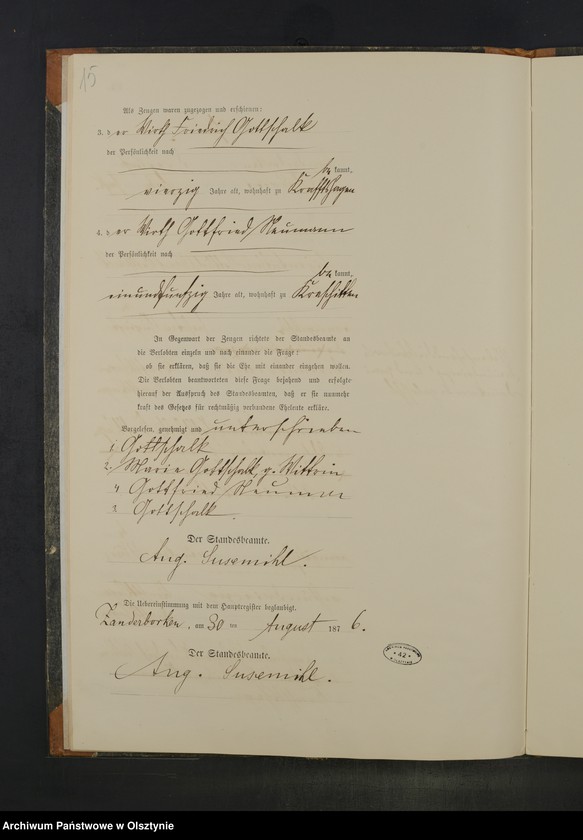 15
Als Zeugen waren zugezogen und erschienen:
3. der Wirth Friedrich Gottschalk
der Persönlichkeit nach
be kannt,
vierzig Jahre alt, wohnhaft zu Kraftshagen
4. der Wirth Gottfried Neumann
der Persönlichkeit nach
be kannt,
einundfunfzig Jahre alt, wohnhaft zu
In Gegenwart der Zeugen richtete der Standesbeamte an
die Verlobten einzeln und nach einander die Frage:
ob sie erklären, daß sie die Ehe mit einander eingehen wollen.
Die Verlobten beantworteten diese Frage bejahend und erfolgte
hierauf der Ausspruch des Standesbeamten, daß er sie nunmehr
kraft des Gesetzes für rechtmäßig verbundene Eheleute erkläre.
Vorgelesen, genehmigt und unterschrieben
1. Gottschalk
2. Marie Gottschalk, g. Wittrin
4 Gottfried Neuman
3 Gottschalk
Der Standesbeamte.
Aug. Susemihl.
Die Uebereinstimmung mit dem Hauptregister beglaubigt.
Zanderborken, am 30 ten August 187 6.
Der Standesbeamte.
Aug. Susemihl.
* 42 *
Archiwum Państwowe w Olsztynie